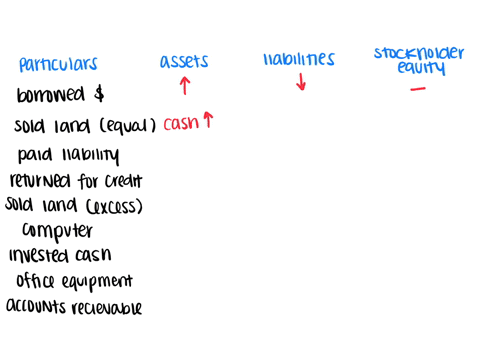 particulars assets liabilities stockholder equity
borrowed $ ↑ ↓ —
sold land (equal) cash ↑
paid liability
returned for credit
sold land (excess)
computer
invested cash
office equipment
accounts recievable